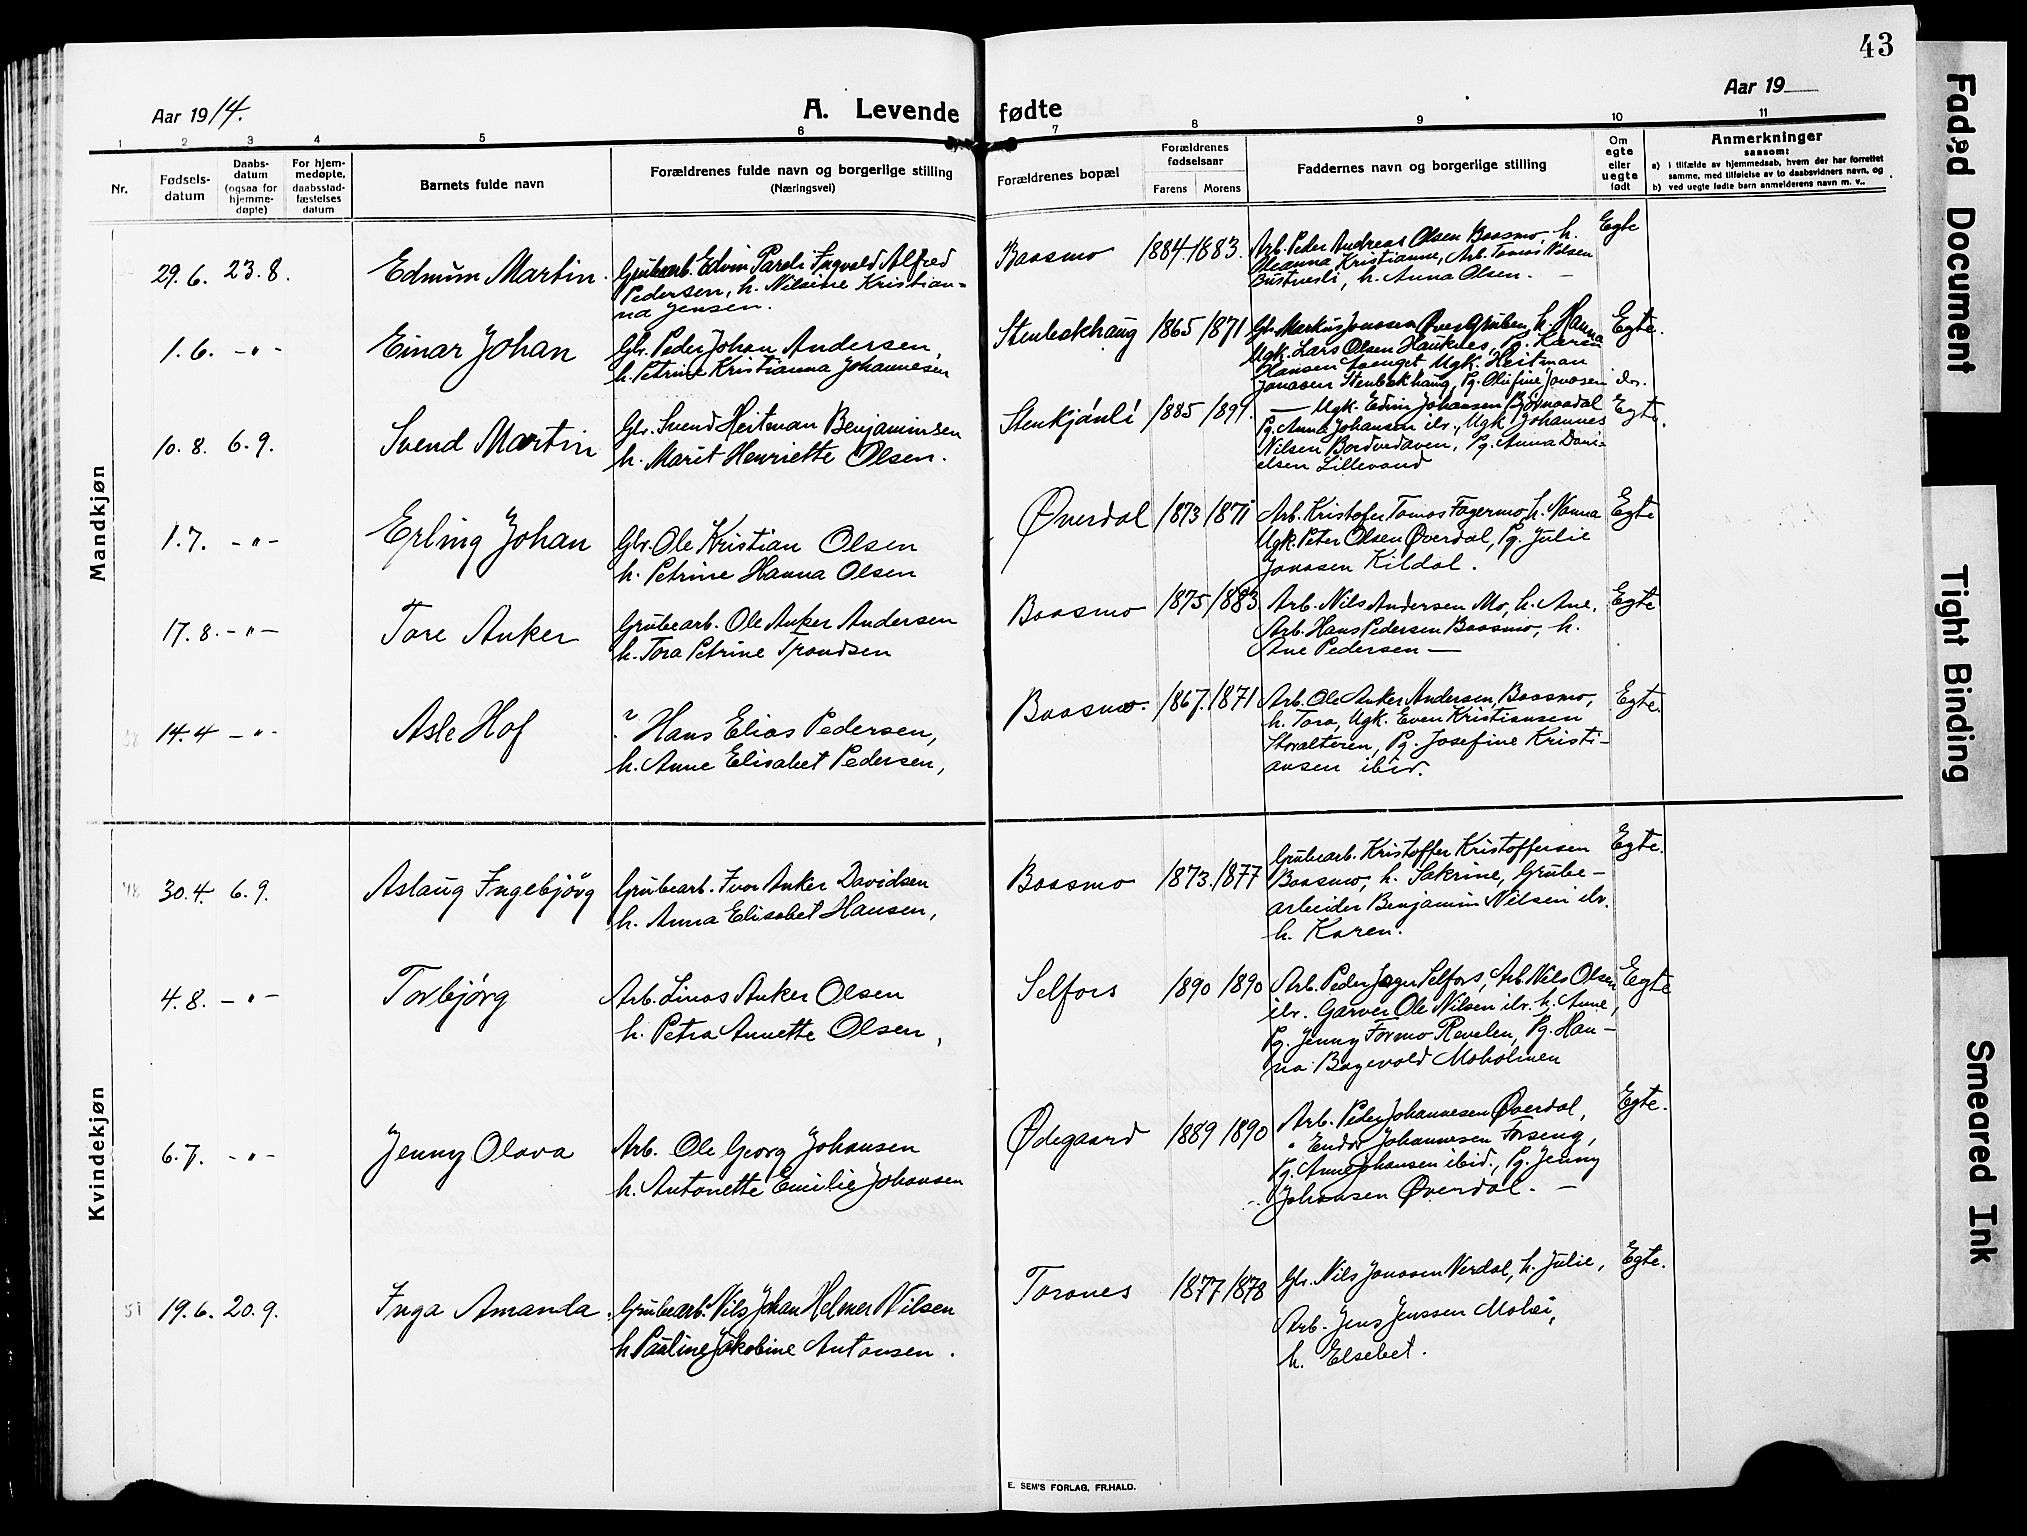 43
Aar 1914.
A. Levende fødte
Aar 19
1 2 3 4 5 6 7 8 9 10 11
Nr.
Fødsels-
datum
Daabs-
datum
(ogsaa for
hjemme-
døpte)
For hjem-
medøpte,
daabsstad-
fæstelses
datum
Barnets fulde navn
Forældrenes fulde navn og borgerlige stilling
(Næringsvei)
Forældrenes bopæl
Forældrenes
fødselsaar
Farens Morens
Faddernes navn og borgerlige stilling
Om
egte
eller
uegte
født
Anmerkninger
saasom:
a) i tilfælde av hjemmedaab, hvem der har forrettet
samme, med tilføielse av to daabsvidners navn, og
b) ved uegte fødte barn anmelderens navn m. v..
Mandkjøn
29.6. 23.8. Edmum Martin.
Grubearb. Edvin Paroli Ingvald Alfred
Pedersen, h. Nilsine Kristian-
na Jensen.
Baasmo 1884. 1883.
Arb. Peder Andreas Olsen Baasmo, h.
Oleanna Kristianne, Arb. Tomas Nilsen
Bustnesli, h. Anna Olsen. —
Egte
1.6. -"- Einar Johan
Gbr. Peder Johan Andersen,
h. Petrine Kristianna Johannesen
Stenbekhaug 1865 1871
Gbr. Markus Jonasen Øvre Gruben, h. Hanna
Ugk. Lars Olsen Hauknes, Pg. Karen
Hansen Ugk. Heitman
Jonasen Stenbekhaug, Pg. Olufine Jonasen ibr.
Egte.
10.8. 6.9. Svend Martin
Gbr. Svend Heitman Benjaminsen
h. Marit Henriette Olsen.
Stenkjønli 1885 1891.
— Ugk. Edvin Johansen Bjørnaadal
Pg. Anna Johansen ibr., Ugk. Johannes
Nilsen Bordvedaven, Pg. Anna Dani-
elsen Lillevand
Egte.
1.7. -"- Erling Johan
Gbr. Ole Kristian Olsen
h. Petrine Hanna Olsen
Øverdal 1873 1871
Arb. Kristofer Tomas Fagermo, h. Nanna
Ugk. Peter Olsen Øverdal, Pg. Julie
Jonasen Kildal.
Egte
17.8. -"- Tore Anker
Grubearb. Ole Anker Andersen
h. Tora Petrine Trondsen
Baasmo 1875 1883
Arb. Nils Andersen Mo, h. Ane,
Arb. Hans Pedersen Baasmo, h.
Ane Pedersen —
Egte
14.4 -"- Asle Hof
? Hans Elias Pedersen,
h. Anne Elisabet Pedersen,
Baasmo. 1867. 1871
Arb. Ole Anker Andersen, Baasmo,
h. Tora, Ugk. Even Kristiansen
Storalteren, Pg. Josefine Kristi-
ansen ibid.
Egte.
Kvindekjøn
48 30.4 6.9. Aslaug Ingebjørg
Grubearb. Ivar Anker Davidsen
h. Anna Elisabet Hansen,
Baasmo 1873. 1877
Grubearb. Kristoffer Kristoffersen
Baasmo, h. Sakrine, Grube-
arbeider Benjamin Nilsen ibr.
h. Karen.
Egte.
4.8. -"- Torbjørg
Arb. Linas Anker Olsen
h. Petra Annette Olsen,
Selfors 1890 1890
Arb. Peder Jæger Selfors, Arb. Nils Olsen
ibr. Garver Ole Nilsen ibr. h. Anne,
Pg. Jenny Formo Revelen, Pg. Han-
na Bagevold Moholmen
Egte
6.7. -"- Jenny Olava
Arb. Ole Georg Johansen
h. Antonette Emilie Johansen
Ødegaard 1889 1890
Arb. Peder Johannesen Øverdal,
" Endor Johannesen Forseng,
Pg. Anne Johansen ibid., Pg. Jenny
Johansen Øverdal. —
Egte.
51 19.6. 20.9. Inga Amanda.
Grubearb. Nils Johan Helmer Nilsen
h Pauline Jakobine Antonsen.
Toranes 1877 1878
Gbr. Nils Jonasen Verdal, h. Julie,
Arb. Jens Jenssen Mohei,
h. Elsebet.
Egte.
E. SEM'S FORLAG, FR.HALD.
Faded Document
Tight Binding
Smeared Ink